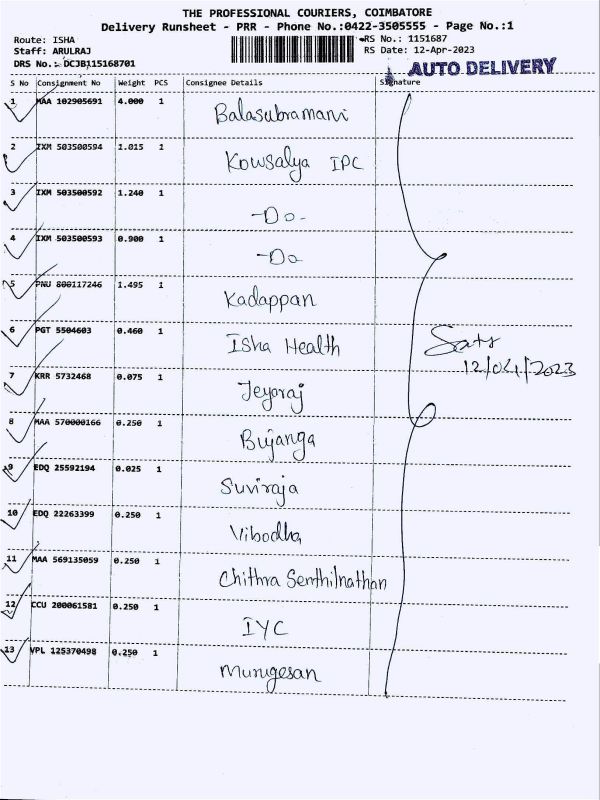 THE PROFESSIONAL COURIERS, COIMBATORE
Delivery Runsheet - PRR - Phone No.:0422-3505555 - Page No.:1
Route: ISHA RS No.: 1151687
Staff: ARULRAJ RS Date: 12-Apr-2023
DRS No.: DCJB115168701 AUTO DELIVERY
S No Consignment No Weight PCS Consignee Details Signature
1 MAA 102905691 4.000 1 Balasubramani
2 IXM 503500594 1.015 1 Kowsalya IPC
3 IXM 503500592 1.240 1 -Do-
4 IXM 503500593 0.900 1 -Do
5 PNU 800117246 1.495 1 Kadappan
6 PGT 5504603 0.460 1 Isha Health
12/04/2023
7 KRR 5732468 0.075 1 Jeyaraj
8 MAA 570000166 0.250 1 Bujanga
9 EDQ 25592194 0.025 1 Suviraja
10 EDQ 22263399 0.250 1 Vibodha
11 MAA 569135059 0.250 1 Chithra Senthilnathan
12 CCU 200061581 0.250 1 IYC
13 VPL 125370498 0.250 1 Murugesan